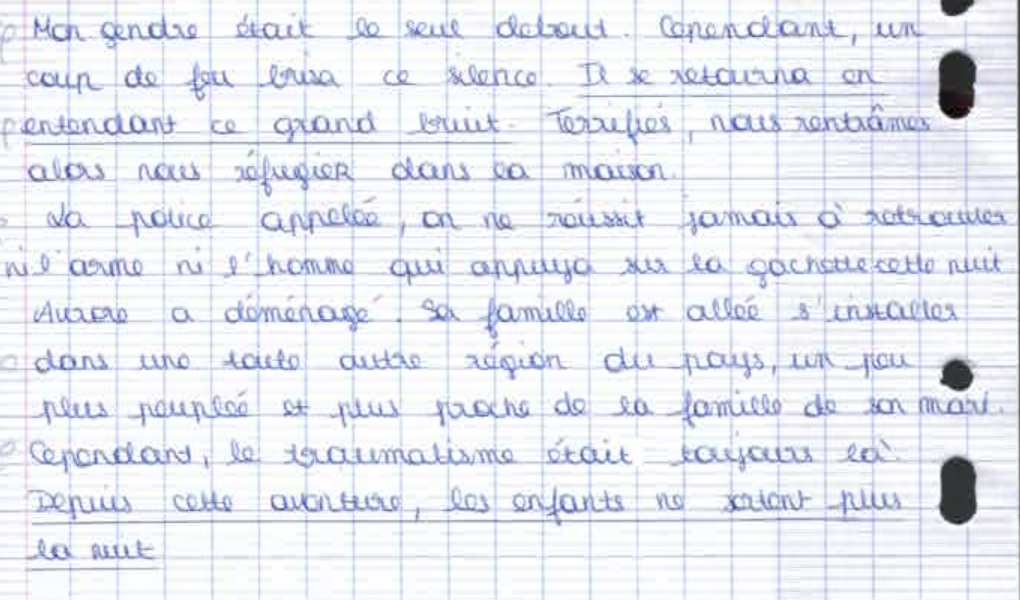 Mon gendre était le seul debout. Cependant, un
coup de feu brisa ce silence. Il se retourna en
entendant ce grand bruit. Terrifiés, nous rentrâmes
alors nous réfugier dans la maison.
La police appelée, on ne réussit jamais à retrouver
ni l'arme ni l'homme qui appuya sur la gachette cette nuit
Aurore a déménagé. Sa famille est allée s'installer
dans une toute autre région du pays, un peu
plus peuplée et plus proche de la famille de son mari.
Cependant, le traumatisme était toujours là.
Depuis cette aventure, les enfants ne sortent plus
la nuit